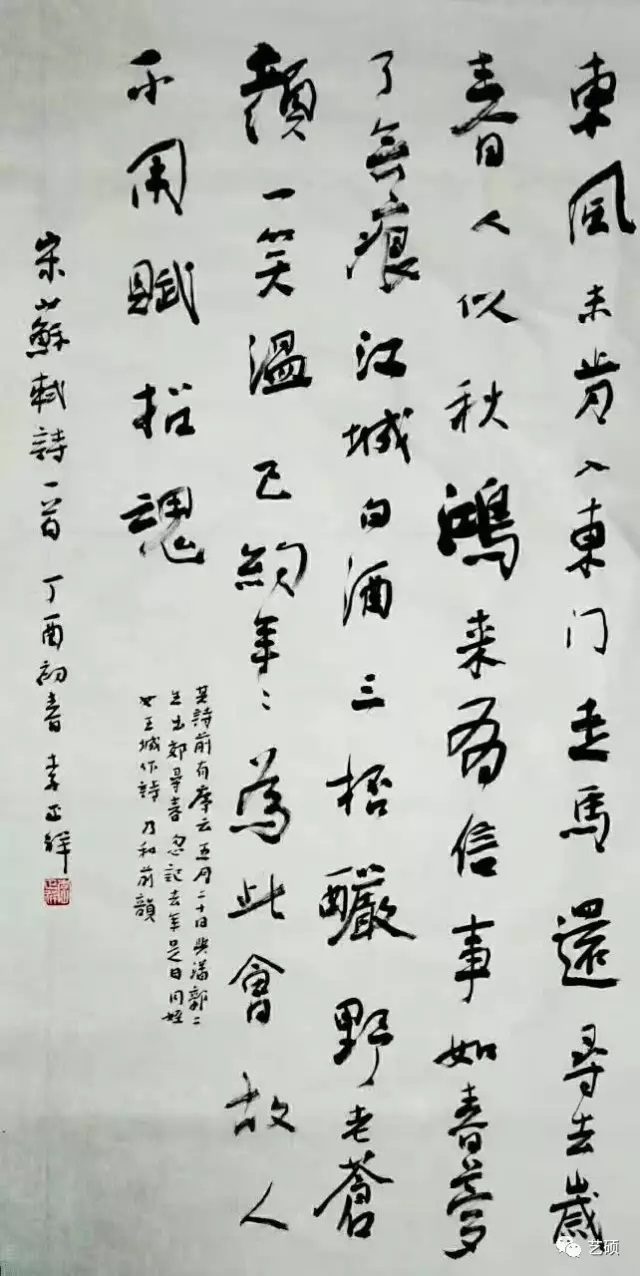 東風未肯入東门走馬還尋去歲
春人似秋鴻来有信事如春夢
了無痕江城白酒三桮釅野老蒼
顏一笑溫已約年〻為此會故人
不用賦招魂
其詩前有序云正月二十日與潘郭二
生出郊尋春忽記去年是日同姪
女王城作詩乃和前韻
宋蘇軾詩一首丁酉初春李正祥
艺硕